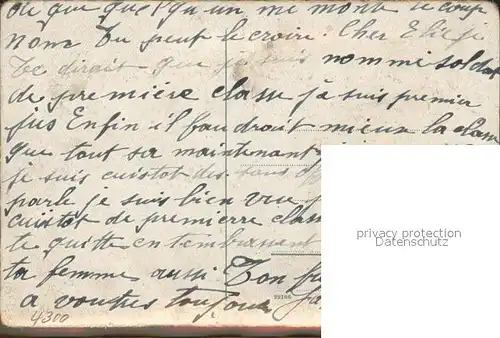 ou que quelqu'un me monte le coup
non Tu peut le croire. Cher Elie je
te dirait que je suis nommé soldat
de premiere classe je suis premier
jus Enfin il faudrait mieux la classe
que tout sa maintenant
je suis cuistot des sous off
parle je suis bien vue
cuistot de premierre class
te quitte en tembrassent
ta femme aussi Ton
a vous toujours
4300
privacy protection
Datenschutz